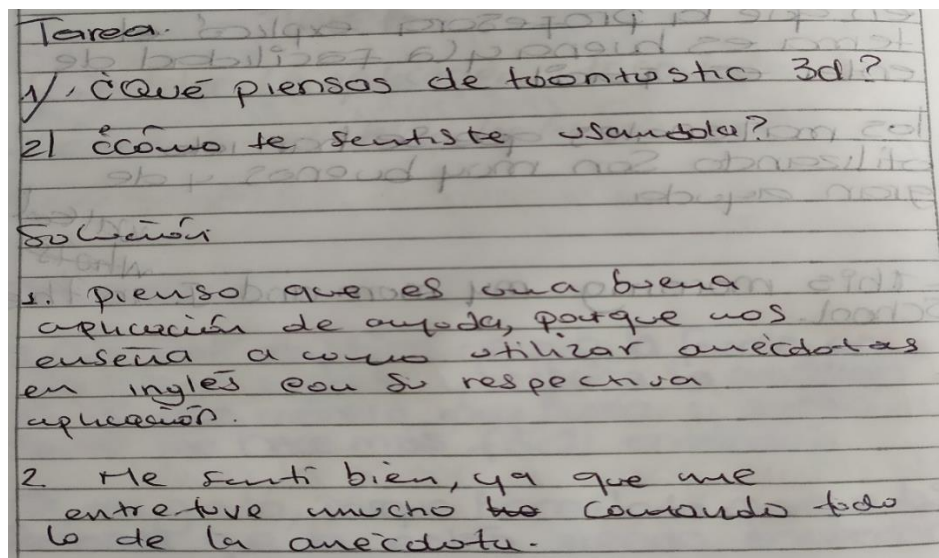 Tarea.
1/. ¿Qué piensas de toontastic 3d?
2) ¿Cómo te sentiste usandola?
Solución
1. Pienso que es una buena
aplicación de ayuda, porque nos
enseña a como utilizar anécdotas
en inglés con su respectiva
aplicación.
2. Me senti bien, ya que me
entretuve mucho todo
lo de la anécdota.